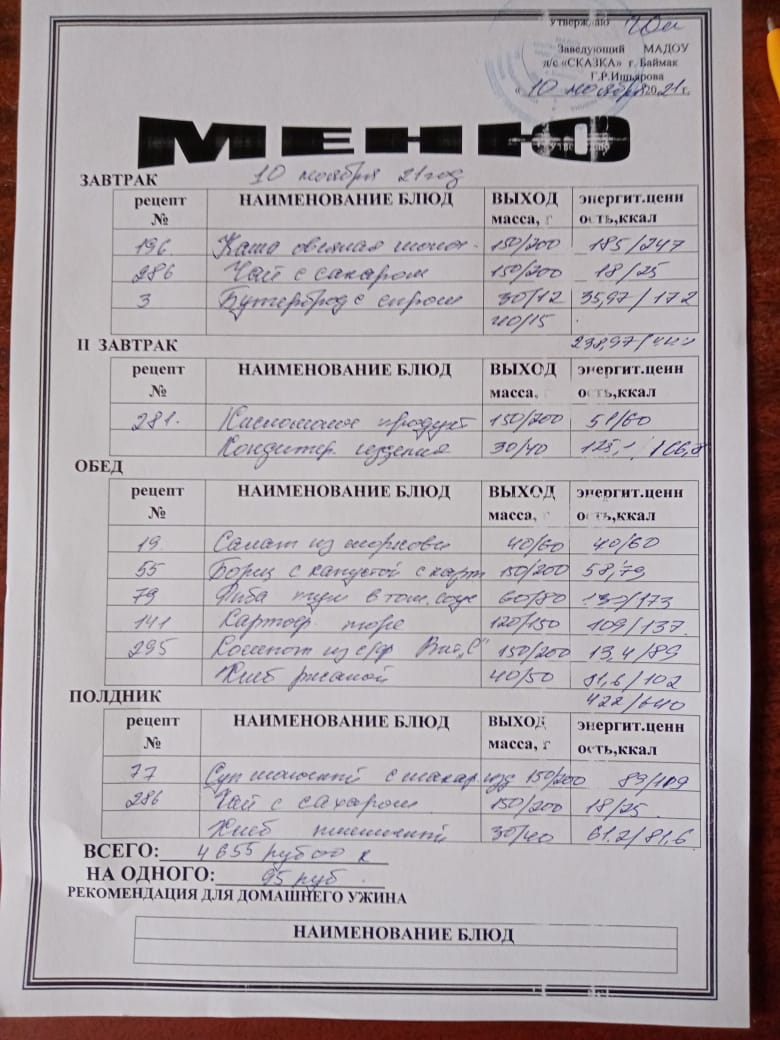 Утверждаю
Заведующий МАДОУ
д/с «СКАЗКА» г. Баймак
Г.Р.Ишьярова
« 10 ноября 2021 г.
МЕНЮ
10 ноября 21 год
ЗАВТРАК
рецепт № НАИМЕНОВАНИЕ БЛЮД ВЫХОД масса, г энергит.ценн ость,ккал
196 Каша овсяная молоч. 150/200 185/247
286 Чай с сахаром 150/200 18/25
3 Бутерброд с сыром 30/12 35,97/172
40/15
238,97/
II ЗАВТРАК
рецепт № НАИМЕНОВАНИЕ БЛЮД ВЫХОД масса, г энергит.ценн ость,ккал
281. Кисломолоч продукт 150/200 51/60
Кондитер. изделия 30/40 125,1/166,8
ОБЕД
рецепт № НАИМЕНОВАНИЕ БЛЮД ВЫХОД масса, г энергит.ценн ость,ккал
19 Салат из моркови 40/60 40/60
55 Борщ с капустой с карт 150/200 58,79
79 Рыба туш в том. соус 60/80 130/173
141 Картоф пюре 120/150 109/137.
295 Компот из с/ф Вит „С" 150/200 13,4/89
Хлеб ржаной 40/50 81,6/102
422/640
ПОЛДНИК
рецепт № НАИМЕНОВАНИЕ БЛЮД ВЫХОД масса, г энергит.ценн ость,ккал
77 Суп молочный с макар изд 150/200 89/109
286 Чай с сахаром 150/200 18/25
Хлеб пшеничный 30/40 61.2/81,6
ВСЕГО: 4655 руб 00 к
НА ОДНОГО: 95 руб.
РЕКОМЕНДАЦИЯ ДЛЯ ДОМАШНЕГО УЖИНА
НАИМЕНОВАНИЕ БЛЮД